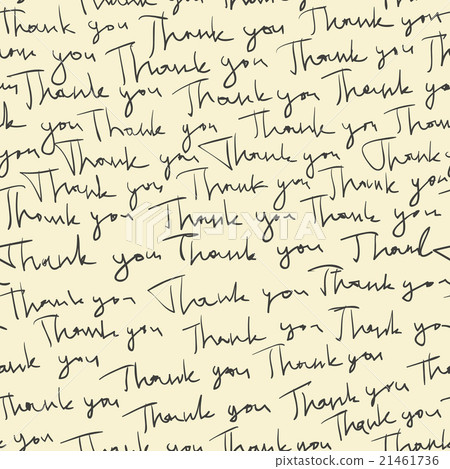 Thank you Thank you Thank you
Thank you Thank you Thank you
you Thank you Thank you
Thank you Thank you Thank you
you Thank you Thank you Thank
you Thank you Thank you Thank
Thank you Thank you Thank you
Thank you Thank you Thank you
Thank you Thank you Thank
Thank you Thank you Thank you
Thank you Thank you Thank you
Thank you Thank you Thank
Thank you Thank you Thank
Thank you Thank you Thank you
you Thank you Thank you Thank
PIXTA
pixta.jp - 21461736